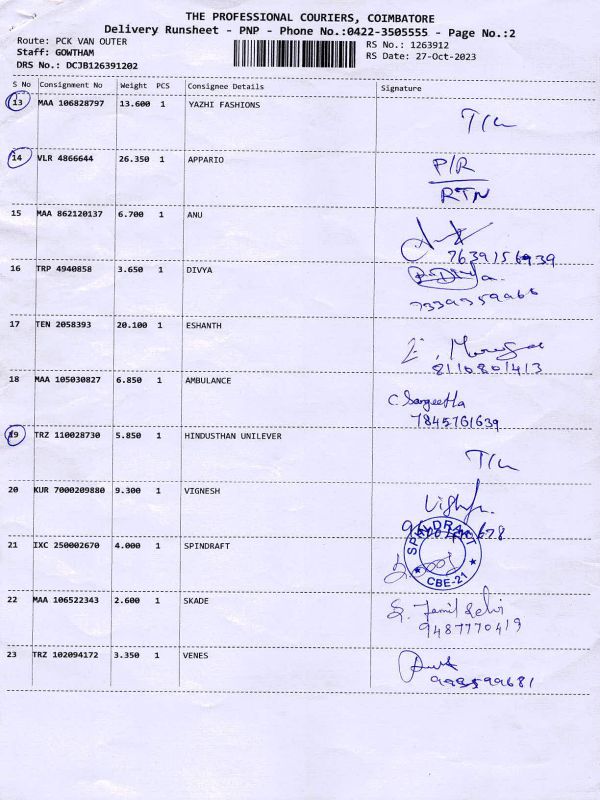 THE PROFESSIONAL COURIERS, COIMBATORE
Delivery Runsheet - PNP - Phone No.:0422-3505555 - Page No.:2
Route: PCK VAN OUTER RS No.: 1263912
Staff: GOWTHAM RS Date: 27-Oct-2023
DRS No.: DCJB126391202
S No Consignment No Weight PCS Consignee Details Signature
13 MAA 106828797 13.600 1 YAZHI FASHIONS
14 VLR 4866644 26.350 1 APPARIO P/R
RTN
15 MAA 862120137 6.700 1 ANU
7639156939
16 TRP 4940858 3.650 1 DIVYA
17 TEN 2058393 20.100 1 ESHANTH
8110801413
18 MAA 105030827 6.850 1 AMBULANCE C. Sangeetha
7845761639
19 TRZ 110028730 5.850 1 HINDUSTHAN UNILEVER
20 KUR 7000209880 9.300 1 VIGNESH
21 IXC 250002670 4.000 1 SPINDRAFT SPINDRAFT
CBE-21
22 MAA 106522343 2.600 1 SKADE S. Tamil Selvi
9487770419
23 TRZ 102094172 3.350 1 VENES